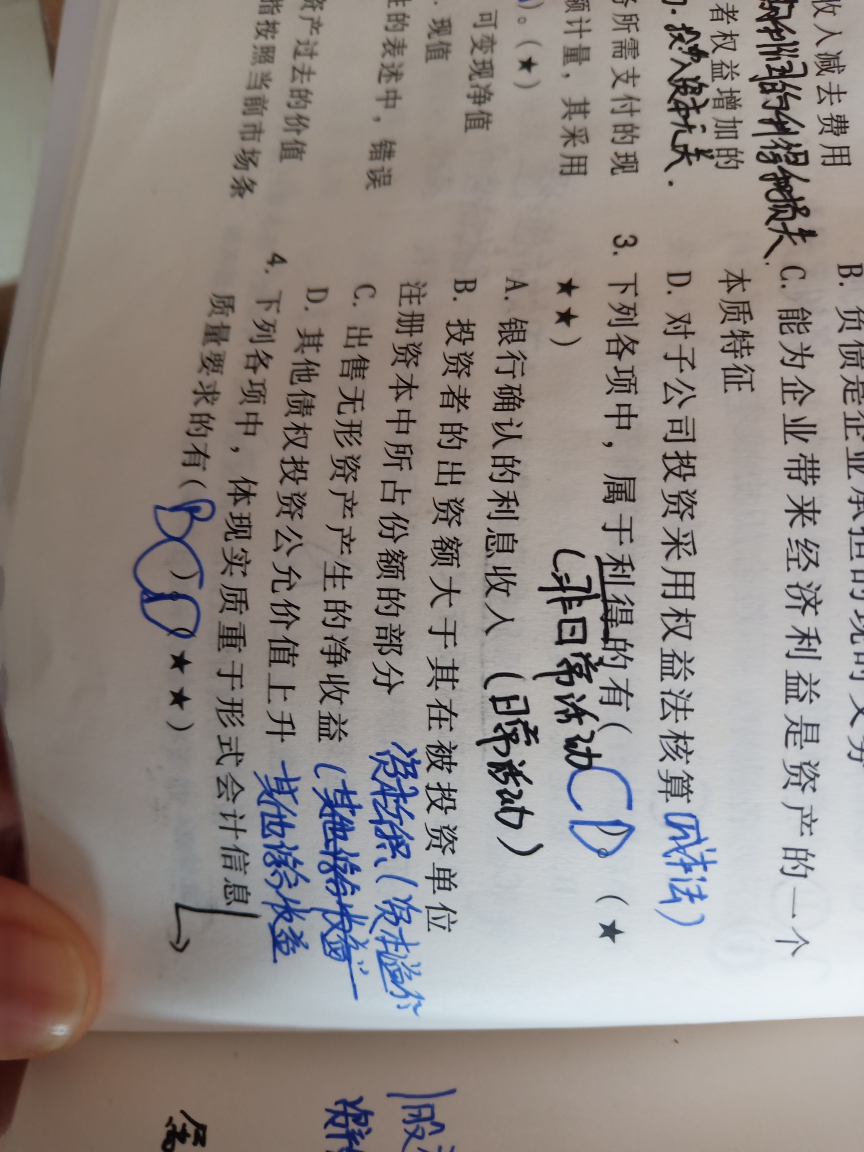 收入减去费用
者权益增加的
务所需支付的现
额计量，其采用
。(★)
可变现净值
. 现值
性的表述中，错误
资产过去的价值
指按照当前市场条
B. 负债是企业承担的现时义务
C. 能为企业带来经济利益是资产的一个
本质特征
D. 对子公司投资采用权益法核算 成本法)
3. 下列各项中，属于利得的有( CD )。(★
★★)
(非日常活动
A. 银行确认的利息收入 (日常活动)
B. 投资者的出资额大于其在被投资单位
注册资本中所占份额的部分 资本公积(资本溢价
C. 出售无形资产产生的净收益 (其他综合收益
D. 其他债权投资公允价值上升 其他综合收益
4. 下列各项中，体现实质重于形式会计信息
质量要求的有( BCD )。(★★)